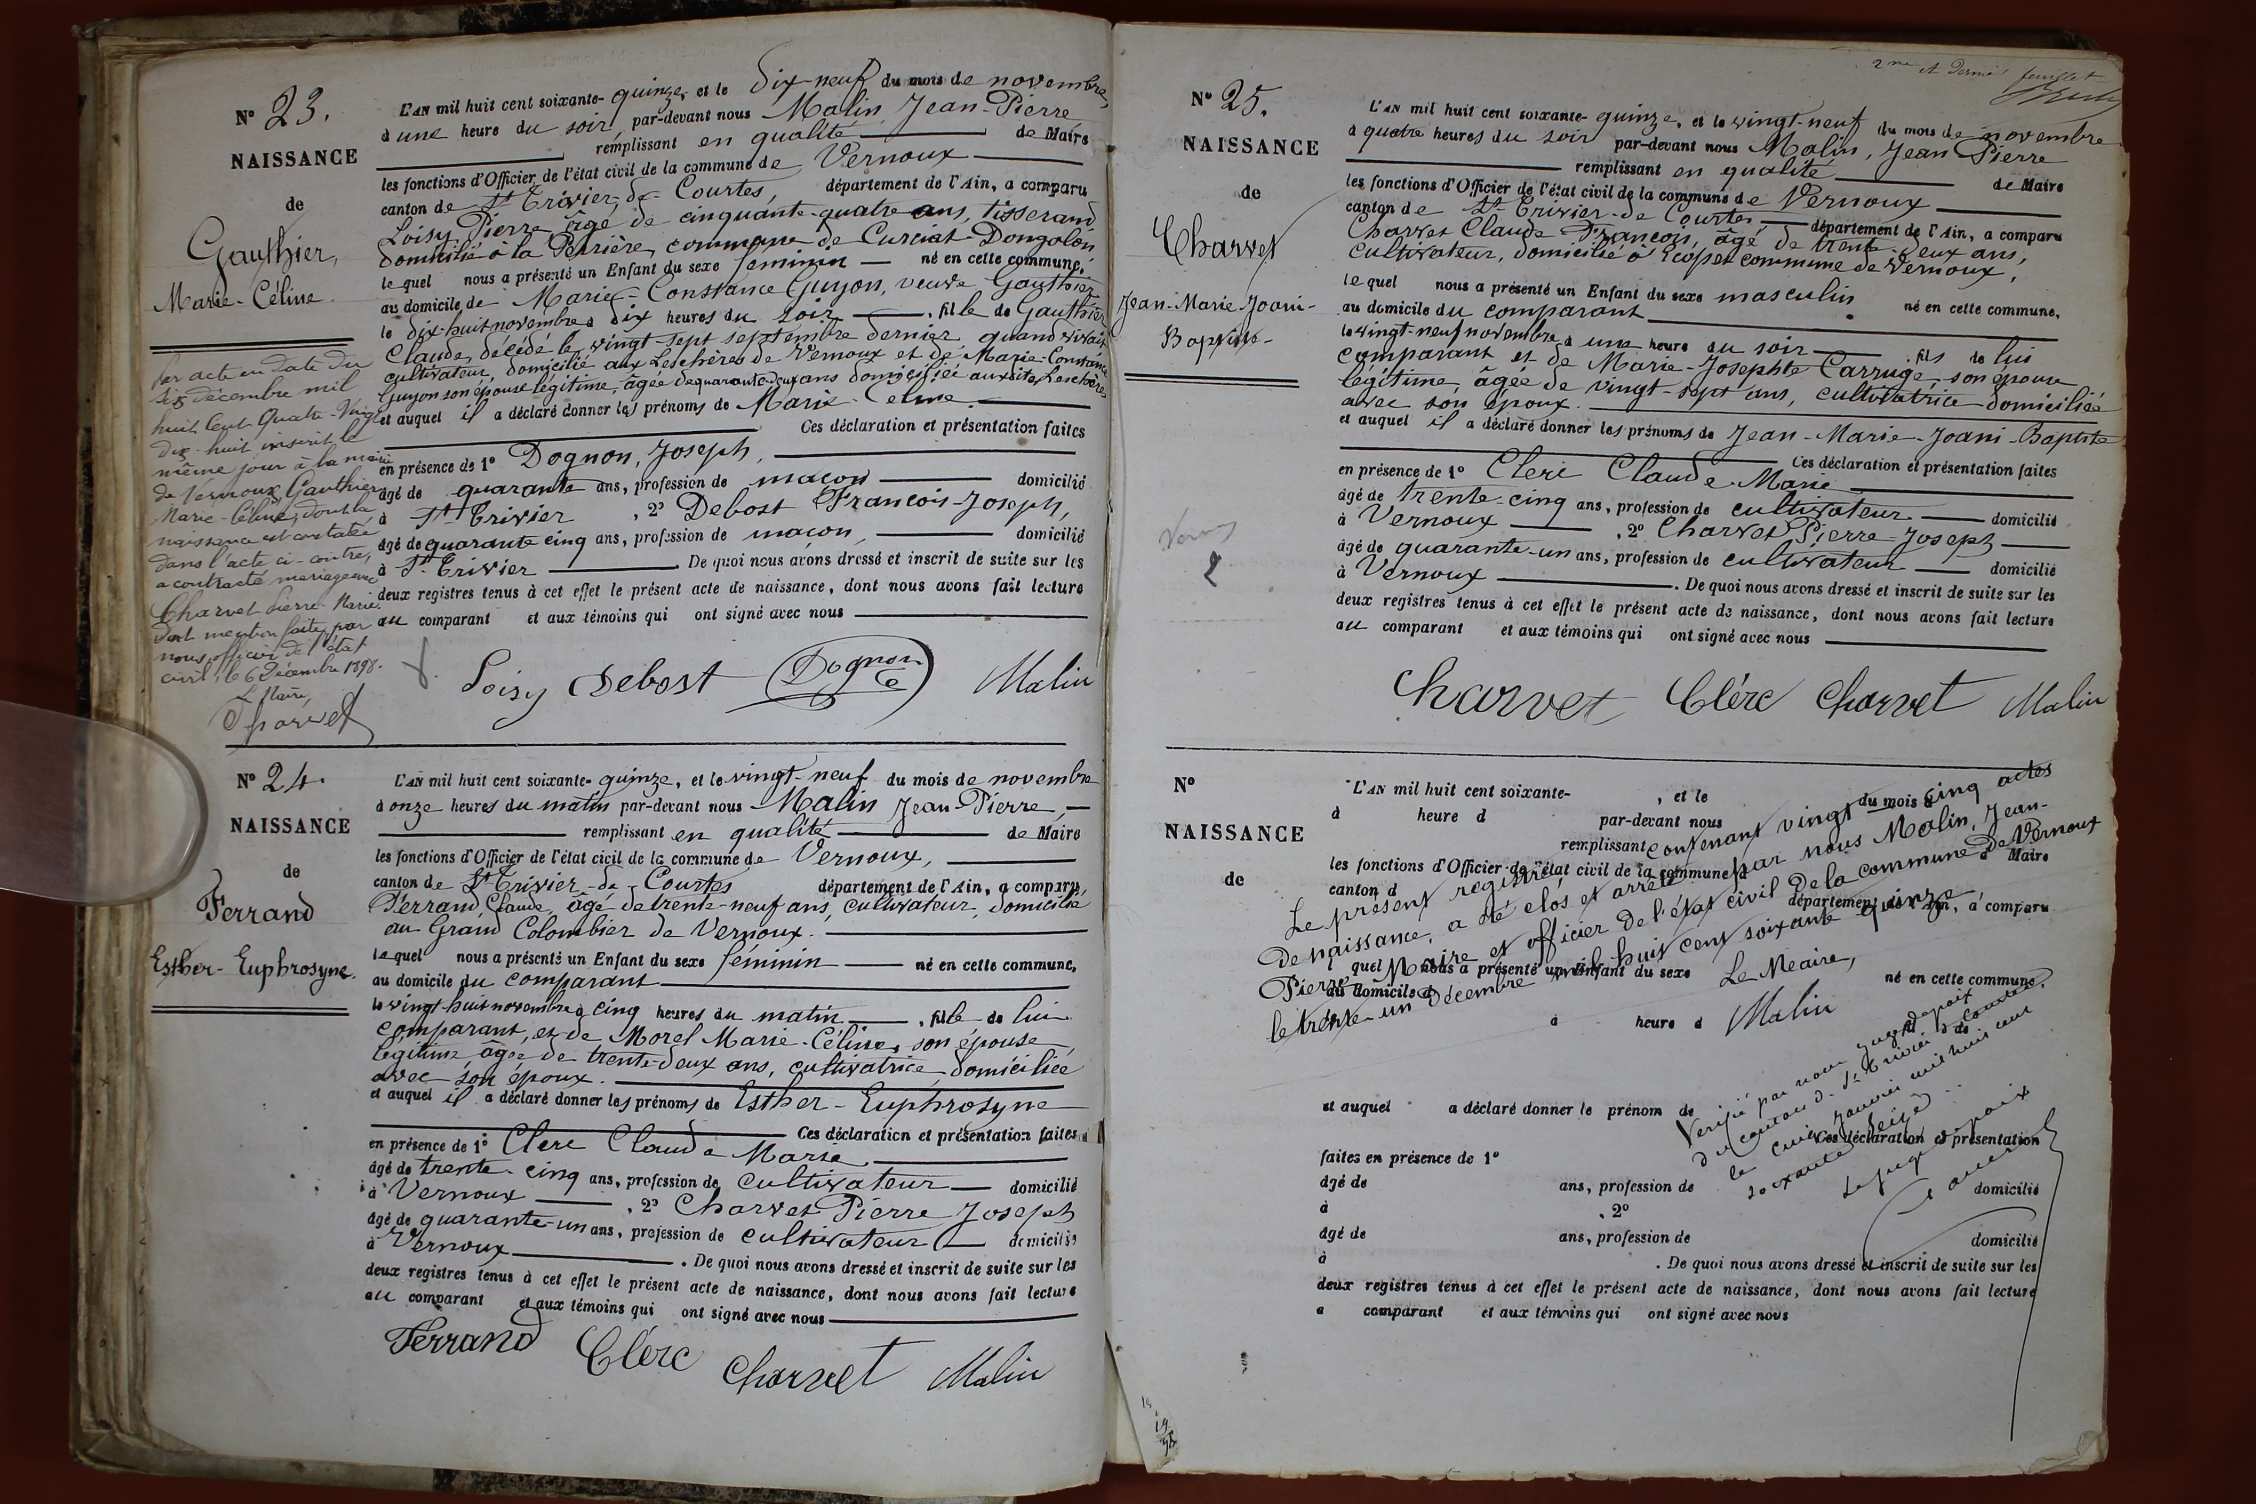 N° 23.
NAISSANCE
de
Gauthier,
Marie-Céline.
L'AN mil huit cent soixante-quinze, et le Dix-neuf du mois de novembre,
à une heure du soir, par-devant nous Malin Jean-Pierre
remplissant en qualité de Maire
les fonctions d'Officier de l'état civil de la commune de Vernoux
canton de St Trivier-de-Courtes, département de l'Ain, a comparu
Loisy Pierre âgé de cinquante-quatre ans, tisserand,
domicilié à la Perrière, commune de Curciat-Dongalon
le quel nous a présenté un Enfant du sexe féminin né en cette commune,
au domicile de Marie-Constance Guyon, veuve Gauthier
le dix-huit novembre à dix heures du soir, fille de Gauthier
Claude, décédé le vingt-sept septembre dernier, quand vivait
cultivateur, domicilié aux Leschères de Vernoux et de Marie-Constance
Guyon son épouse légitime, âgée de quarante-deux ans domiciliée aux dites Leschères
et auquel il a déclaré donner les prénoms de Marie-Céline.
Ces déclaration et présentation faites
en présence de 1° Dognon, Joseph,
âgé de quarante ans, profession de maçon domicilié
à St Trivier, 2° Debost François-Joseph,
âgé de quarante cinq ans, profession de maçon, domicilié
à St Trivier. De quoi nous avons dressé et inscrit de suite sur les
deux registres tenus à cet effet le présent acte de naissance, dont nous avons fait lecture
au comparant et aux témoins qui ont signé avec nous
Loisy Debost Dognon Malin
Par acte en date du
six décembre mil
huit cent quatre-vingt
dix-huit inscrit le
même jour à la mairie
de Vernoux, Gauthier
Marie-Céline, dont la
naissance est constatée
dans l'acte ci-contre,
a contracté mariage avec
Charvet Pierre-Marie.
Dont mention faite par
nous, officier de l'état
civil, le 6 Décembre 1898.
Le Maire,
Charvet
N° 24.
NAISSANCE
de
Ferrand
Esther-Euphrosyne.
L'AN mil huit cent soixante-quinze, et le vingt-neuf du mois de novembre
à onze heures du matin par-devant nous Malin Jean-Pierre,
remplissant en qualité de Maire
les fonctions d'Officier de l'état civil de la commune de Vernoux,
canton de St Trivier-de-Courtes département de l'Ain, a comparu,
Ferrand, Claude, âgé de trente-neuf ans, cultivateur, domicilié
au Grand Colombier de Vernoux.
le quel nous a présenté un Enfant du sexe féminin né en cette commune,
au domicile du comparant
le vingt-huit novembre à cinq heures du matin, fille de lui
comparant, et de Morel Marie-Céline, son épouse
légitime âgée de trente-deux ans, cultivatrice, domiciliée
avec son époux.
et auquel il a déclaré donner les prénoms de Esther-Euphrosyne
Ces déclaration et présentation faites
en présence de 1° Clerc Claude Marie
âgé de trente-cinq ans, profession de cultivateur domicilié
à Vernoux, 2° Charvet Pierre Joseph
âgé de quarante-un ans, profession de cultivateur domicilié
à Vernoux. De quoi nous avons dressé et inscrit de suite sur les
deux registres tenus à cet effet le présent acte de naissance, dont nous avons fait lecture
au comparant et aux témoins qui ont signé avec nous
Ferrand Clérc Charvet Malin
2me et Dernier feuillet
N° 25.
NAISSANCE
de
Charvet
Jean-Marie-Joani-
Baptiste
L'AN mil huit cent soixante-quinze, et le vingt-neuf du mois de novembre
à quatre heures du soir par-devant nous Malin, Jean Pierre
remplissant en qualité de Maire
les fonctions d'Officier de l'état civil de la commune de Vernoux
canton de St Trivier-de-Courtes département de l'Ain, a comparu
Charvet Claude-François, âgé de trente-deux ans,
cultivateur, domicilié à commune de Vernoux,
le quel nous a présenté un Enfant du sexe masculin né en cette commune,
au domicile du comparant
le vingt-neuf novembre à une heure du soir, fils de lui
comparant et de Marie-Josephte Carruge, son épouse
légitime, âgée de vingt-sept ans, cultivatrice domiciliée
avec son époux.
et auquel il a déclaré donner les prénoms de Jean-Marie-Joani-Baptiste
Ces déclaration et présentation faites
en présence de 1° Clerc Claude Marie
âgé de trente-cinq ans, profession de cultivateur domicilié
à Vernoux, 2° Charvet Pierre-Joseph
âgé de quarante-un ans, profession de cultivateur domicilié
à Vernoux. De quoi nous avons dressé et inscrit de suite sur les
deux registres tenus à cet effet le présent acte de naissance, dont nous avons fait lecture
au comparant et aux témoins qui ont signé avec nous
Charvet Clérc Charvet Malin
N°
NAISSANCE
de
L'AN mil huit cent soixante- , et le du mois d
à heure d par-devant nous
remplissant Maire
les fonctions d'Officier de l'état civil de la commune d
canton d département de l'Ain, a comparu
quel nous a présenté un Enfant du sexe né en cette commune,
au domicile d
à heure d fil de
et auquel a déclaré donner le prénom de
Ces déclaration et présentation
faites en présence de 1°
âgé de ans, profession de domicilié
à , 2°
âgé de ans, profession de domicilié
à . De quoi nous avons dressé et inscrit de suite sur les
deux registres tenus à cet effet le présent acte de naissance, dont nous avons fait lecture
a comparant et aux témoins qui ont signé avec nous
Le présent registre contenant vingt cinq actes
De naissance, a été clos et arrêté par nous Malin, Jean-
Pierre Maire et officier de l'état civil De la commune De Vernoux
le trente-un Décembre mil-huit cent soixante quinze
Le Meaire,
Malin
Verifié par nous juge de paix
du canton de St Trivier de Courtes
le Janvier mil huit cent
soixante seize
Le juge de paix